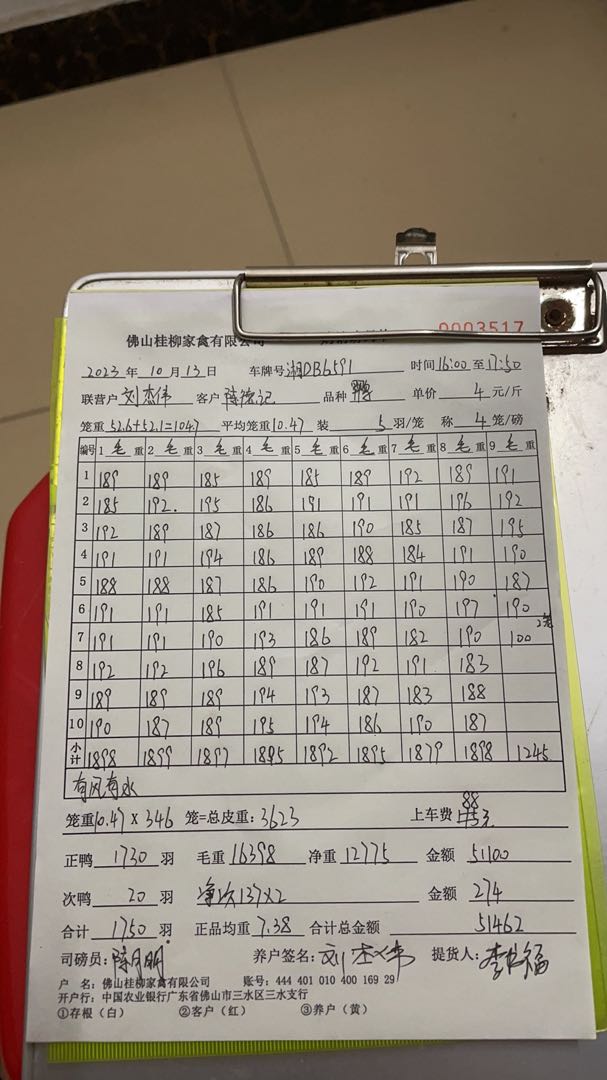 佛山桂柳家禽有限公司
0003517
2023 年 10 月 13 日 车牌号 湘DB6591 时间 16:00 至 17:50
联营户 刘杰伟 客户 陈德记 品种 鸭 单价 4 元/斤
笼重 52.6+52.1=104.7 平均笼重 10.47 装 5 羽/笼 称 4 笼/磅
编号 1 毛 重 2 毛 重 3 毛 重 4 毛 重 5 毛 重 6 毛 重 7 毛 重 8 毛 重 9 毛 重
1 189 189 185 189 185 189 192 189 191
2 185 192. 195 186 191 191 191 196 192
3 192 189 187 186 186 190 185 187 195
4 191 191 194 186 189 188 184 191 190
5 188 188 187 186 190 192 191 190 187
6 191 191 185 191 191 191 190 197 190
7 191 191 190 193 186 189 182 190 100 2笼
8 192 192 196 189 187 192 191 183
9 189 189 189 194 193 187 183 188
10 190 187 189 195 194 186 190 187
小计 1898 1899 1897 1895 1892 1895 1879 1898 1245
有风有水
笼重 10.47 X 346 笼=总皮重: 3623 上车费 88
正鸭 1730 羽 毛重 16398 净重 12775 金额 51100
次鸭 20 羽 净次137×2 金额 274
合计 1750 羽 正品均重 7.38 合计总金额 51462
司磅员: 陈月明 养户签名: 刘杰伟 提货人: 李
户 名: 佛山桂柳家禽有限公司 账号: 444 401 010 400 169 29
开户行: 中国农业银行广东省佛山市三水区三水支行
①存根(白) ②客户(红) ③养户(黄)